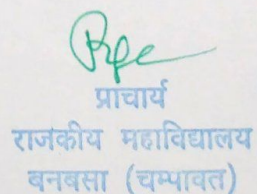 प्राचार्य
राजकीय महाविद्यालय
बनबसा (चम्पावत)